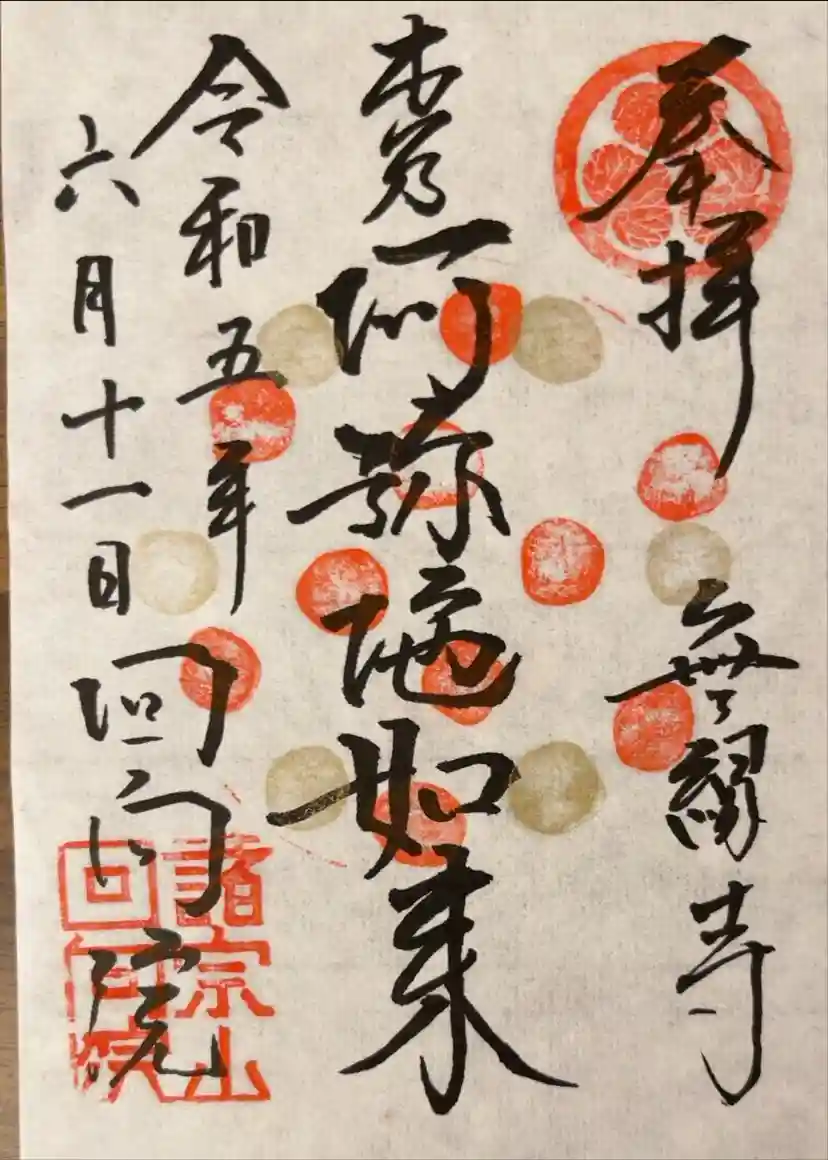 奉拝
無縁寺
本尊
阿弥陀如来
令和五年
六月十一日
回向院
諸宗山
回向院